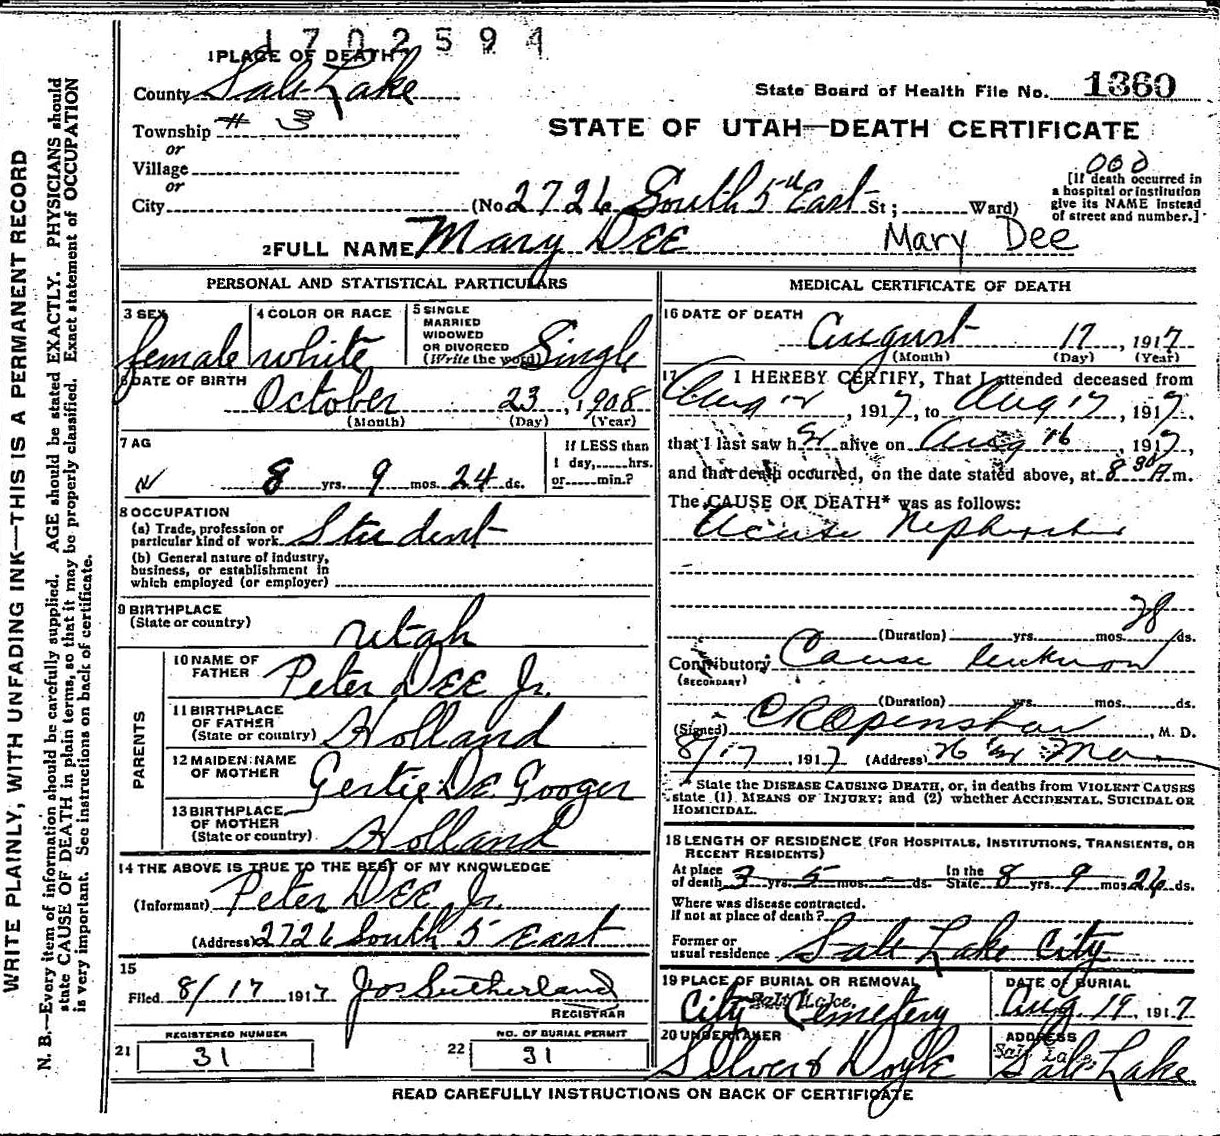 1702594
1 PLACE OF DEATH
County Salt Lake
State Board of Health File No. 1360
Township # 3
STATE OF UTAH—DEATH CERTIFICATE
or
Village
or
City (No. 2726 South 5th East St; Ward)
000
[If death occurred in a hospital or institution give its NAME instead of street and number.]
2 FULL NAME Mary DEE Mary Dee
PERSONAL AND STATISTICAL PARTICULARS
3 SEX female
4 COLOR OR RACE white
5 SINGLE MARRIED WIDOWED OR DIVORCED (Write the word) Single
6 DATE OF BIRTH
October 23, 1908
(Month) (Day) (Year)
7 AG
8 yrs. 9 mos. 24 ds.
If LESS than 1 day, hrs. or min.?
8 OCCUPATION
(a) Trade, profession or particular kind of work Student
(b) General nature of industry, business, or establishment in which employed (or employer)
9 BIRTHPLACE
(State or country) Utah
PARENTS
10 NAME OF FATHER Peter DEE Jr.
11 BIRTHPLACE OF FATHER (State or country) Holland
12 MAIDEN NAME OF MOTHER Gertie De Googer
13 BIRTHPLACE OF MOTHER (State or country) Holland
14 THE ABOVE IS TRUE TO THE BEST OF MY KNOWLEDGE
(Informant) Peter DEE Jr.
(Address) 2726 South 5 East
15
Filed 8/17 1917 Jos Sutherland
REGISTRAR
REGISTERED NUMBER
21 31
NO. OF BURIAL PERMIT
22 31
MEDICAL CERTIFICATE OF DEATH
16 DATE OF DEATH
August 17, 1917
(Month) (Day) (Year)
17 I HEREBY CERTIFY, That I attended deceased from
Aug 12, 1917, to Aug 17, 1917,
that I last saw her alive on Aug 16, 1917,
and that death occurred, on the date stated above, at 8 30 A m.
The CAUSE OF DEATH* was as follows:
Acute Nephritis
(Duration) yrs. mos. 28 ds.
Contributory Cause unknown
(SECONDARY)
(Duration) yrs. mos. ds.
(Signed) C R Openshaw M. D.
8/17 1917 (Address)
* State the DISEASE CAUSING DEATH, or, in deaths from VIOLENT CAUSES
state (1) MEANS OF INJURY; and (2) whether ACCIDENTAL, SUICIDAL OR
HOMICIDAL.
18 LENGTH OF RESIDENCE (FOR HOSPITALS, INSTITUTIONS, TRANSIENTS, OR RECENT RESIDENTS)
At place of death 3 yrs. 5 mos. - ds. In the State 8 yrs. 9 mos. 26 ds.
Where was disease contracted.
If not at place of death?
Former or usual residence Salt Lake City
19 PLACE OF BURIAL OR REMOVAL
Salt Lake.
City Cemetery
DATE OF BURIAL
Aug. 19, 1917
20 UNDERTAKER
ADDRESS
Salt Lake
Salt Lake
READ CAREFULLY INSTRUCTIONS ON BACK OF CERTIFICATE
WRITE PLAINLY, WITH UNFADING INK—THIS IS A PERMANENT RECORD
N. B.—Every item of information should be carefully supplied. AGE should be stated EXACTLY. PHYSICIANS should
state CAUSE OF DEATH in plain terms, so that it may be properly classified. Exact statement of OCCUPATION
is very important. See instructions on back of certificate.